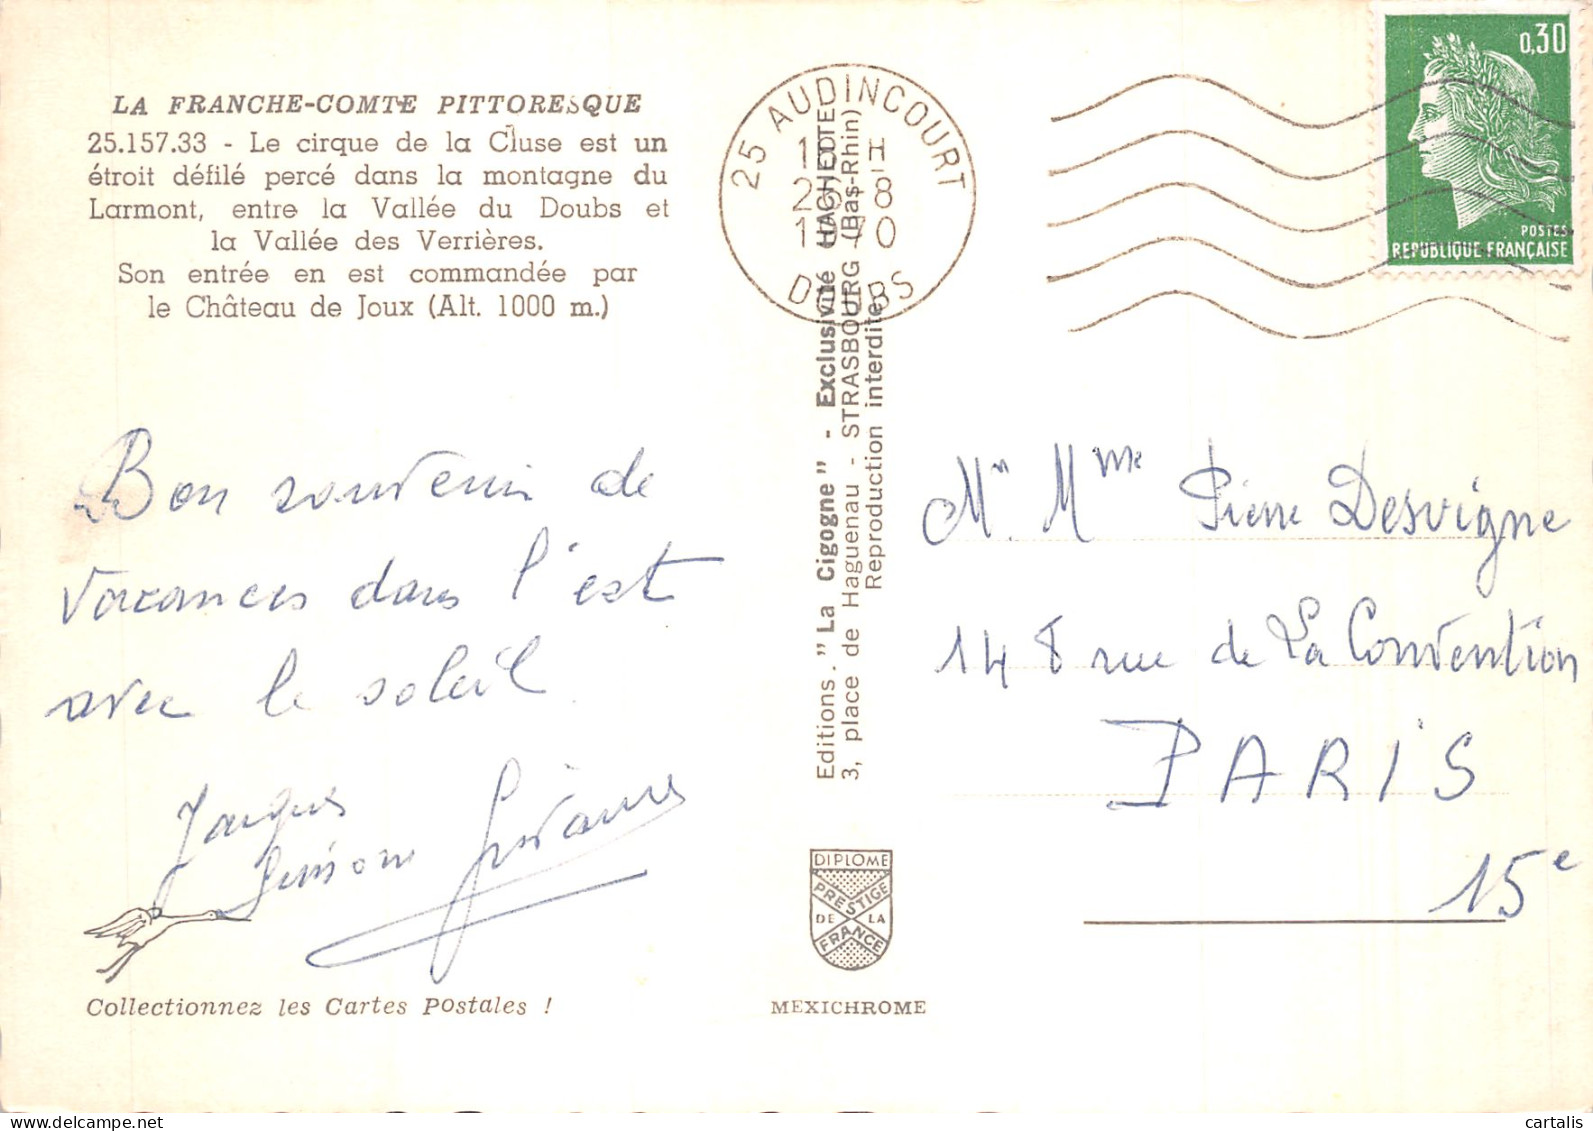 LA FRANCHE-COMTE PITTORESQUE
25.157.33 - Le cirque de la Cluse est un
étroit défilé percé dans la montagne du
Larmont, entre la Vallée du Doubs et
la Vallée des Verrières.
Son entrée en est commandée par
le Château de Joux (Alt. 1000 m.)
Bon souvenir de
vacances dans l'est
avec le soleil
Jacques
Simone
Collectionnez les Cartes Postales !
25 AUDINCOURT
8
1970
DOUBS
Editions "La Cigogne" - Exclusivité HACHETTE
3, place de Haguenau - STRASBOURG (Bas-Rhin)
Reproduction interdite
DIPLOME
PRESTIGE
DE LA
FRANCE
MEXICHROME
0,30
POSTES
REPUBLIQUE FRANÇAISE
Mr. Mme Pierre Desvigne
148 rue de La Convention
PARIS
15e
cartalis